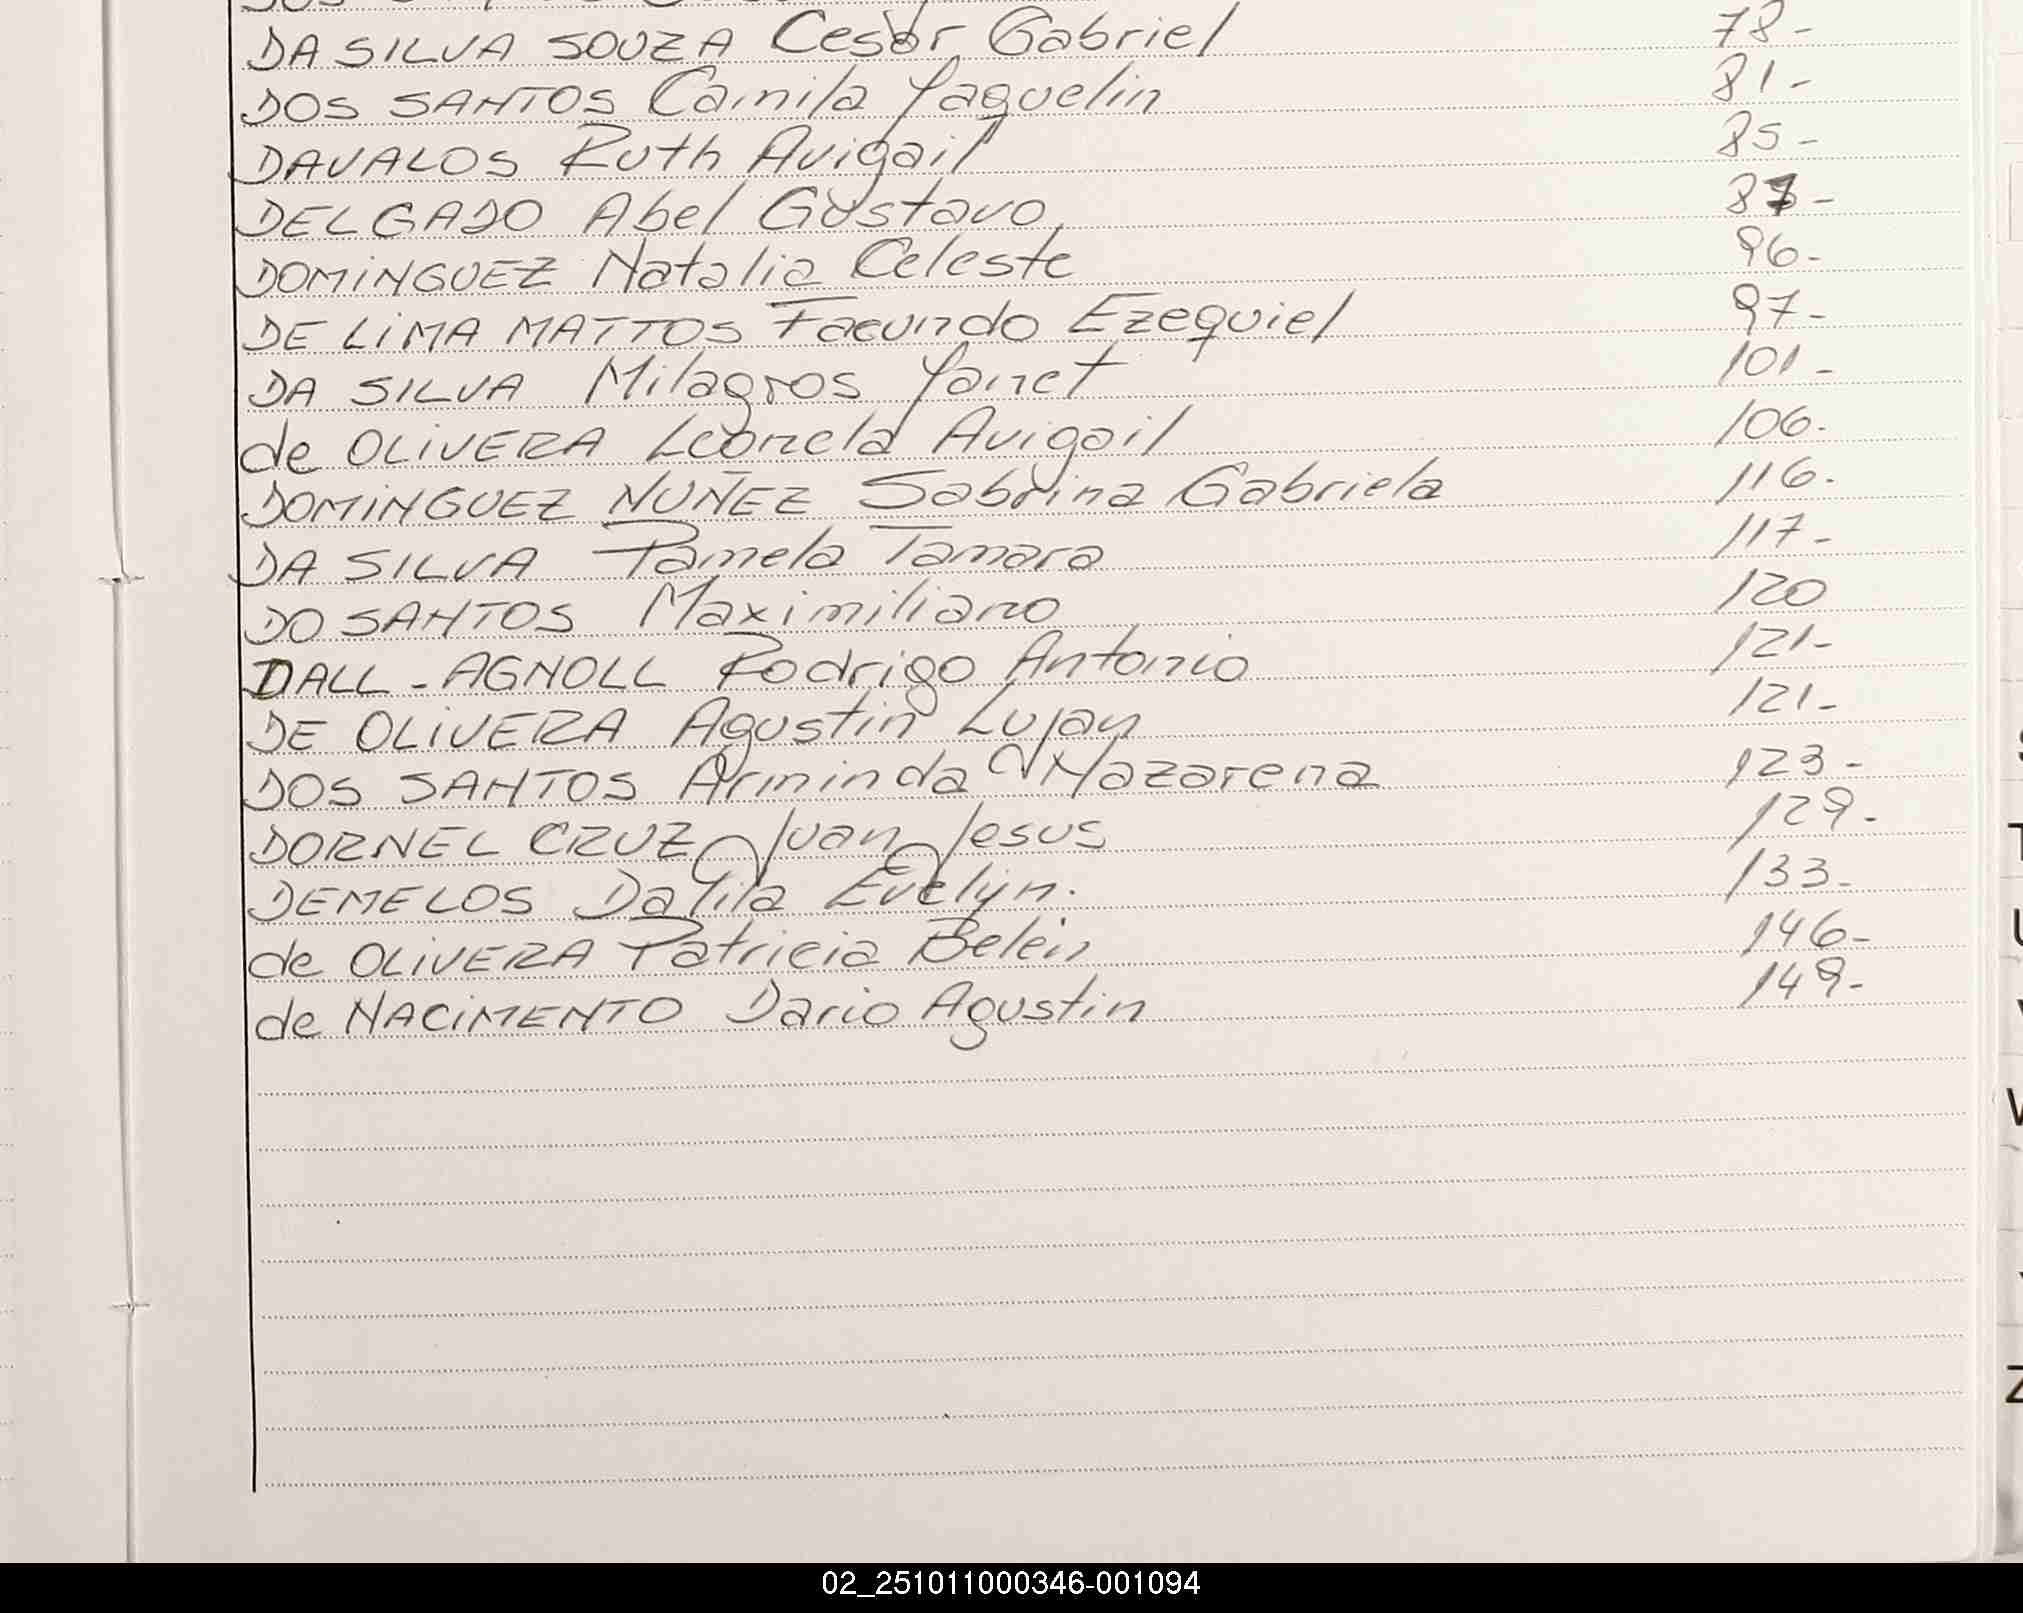 DA SILVA SOUZA Cesar Gabriel 78-
DOS SANTOS Camila Yaquelin 81-
DAVALOS Ruth Avigail 85-
DELGADO Abel Gustavo 87-
DOMINGUEZ Natalia Celeste 96-
DE LIMA MATTOS Facundo Ezequiel 97-
DA SILVA Milagros Yanet 101-
de OLIVERA Leonela Avigail 106.
DOMINGUEZ NUÑEZ Sabrina Gabriela 116.
DA SILVA Pamela Tamara 117-
DO SANTOS Maximiliano 120
DALL-AGNOLL Rodrigo Antonio 121-
DE OLIVERA Agustin Lujan 121-
DOS SANTOS Arminda Nazarena 123-
DORNEL CRUZ Juan Jesus 129.
DEMELOS Dalila Evelyn. 133-
de OLIVERA Patricia Belén 146-
de NACIMENTO Dario Agustin 149-
02_251011000346-001094